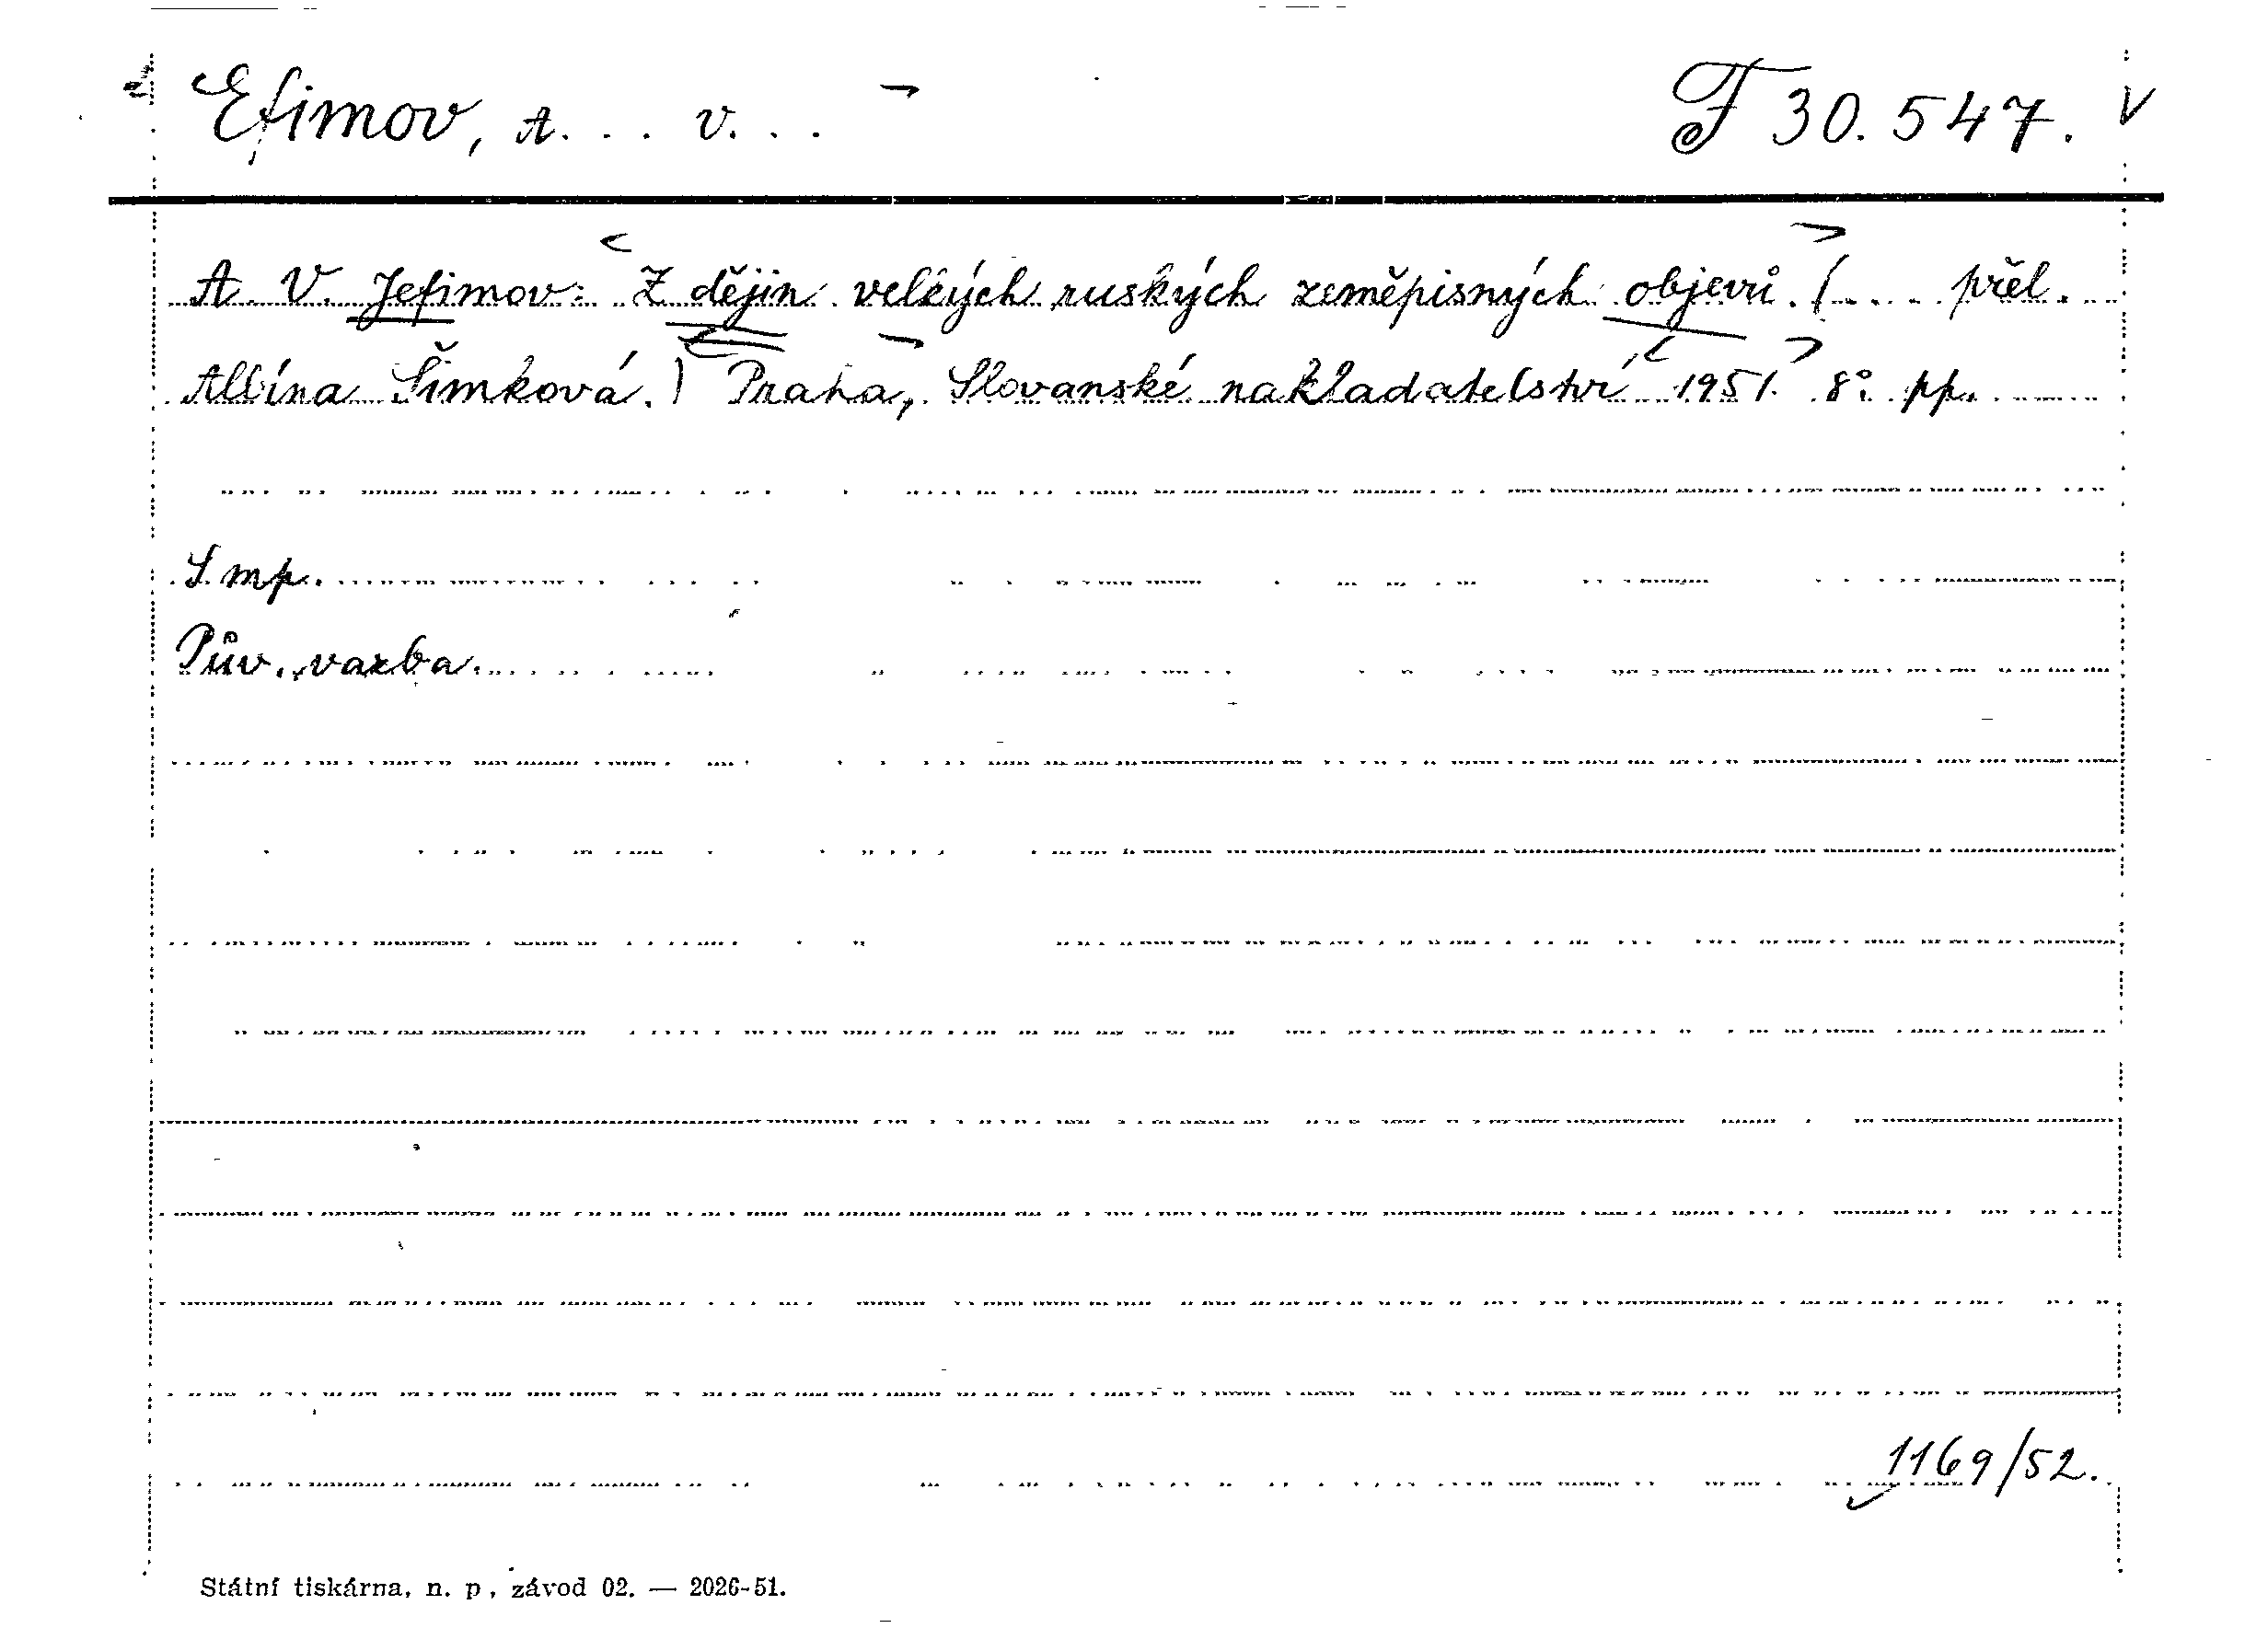 Efimov, A. . . V. . . F 30.547. V
A. V. Jefimov: Z dějin velkých ruských zeměpisných objevů. (.... přel.
Albína Šimková.) Praha, Slovanské nakladatelství 1951. 8°. pp.
S mp.
Pův. vazba.
1169/52.
Státní tiskárna, n. p., závod 02. — 2026-51.